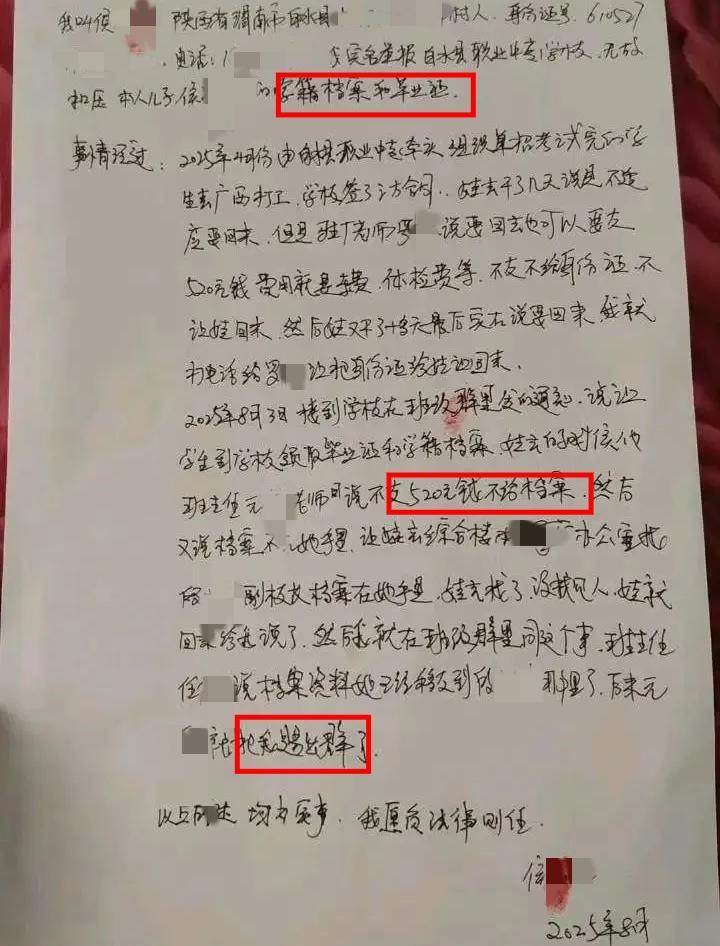 我叫侯 陕西省渭南市白水县 村人，身份证号，610527
电话：1 实名举报白水县职业中专学校，无故
扣压本人儿子侯 的学籍档案和毕业证。
事情经过：2025年4月份由白水县职业中专牵头，组织单招考试完的学
生去广西打工，学校签了三方合同，娃去干了几天说是不适
应要回来，但是驻厂老师罗 说要回去也可以要交
520元钱费用就是车费、体检费等，不交不给身份证，不
让娃回来，然后娃又干了十多天最后实在说要回来，我就
打电话给罗 让把身份证给娃让回来。
2025年8月3日接到学校在班级群里发的通知，说让
学生到学校领取毕业证和学籍档案，娃去的时候他
班主任元 老师说不交520元钱不给档案，然后
又说档案不 她手里，让娃去综合楼 办公室找
副校长档案在她手里，娃去找了，没找见人，娃就
回来给我说了，然后我就在班级群里问这个事，班主任
说档案资料她已经移交到 那里了，后来元
把我踢出群了。
以上 均为实事，我愿负法律则任。
侯
2025年8月